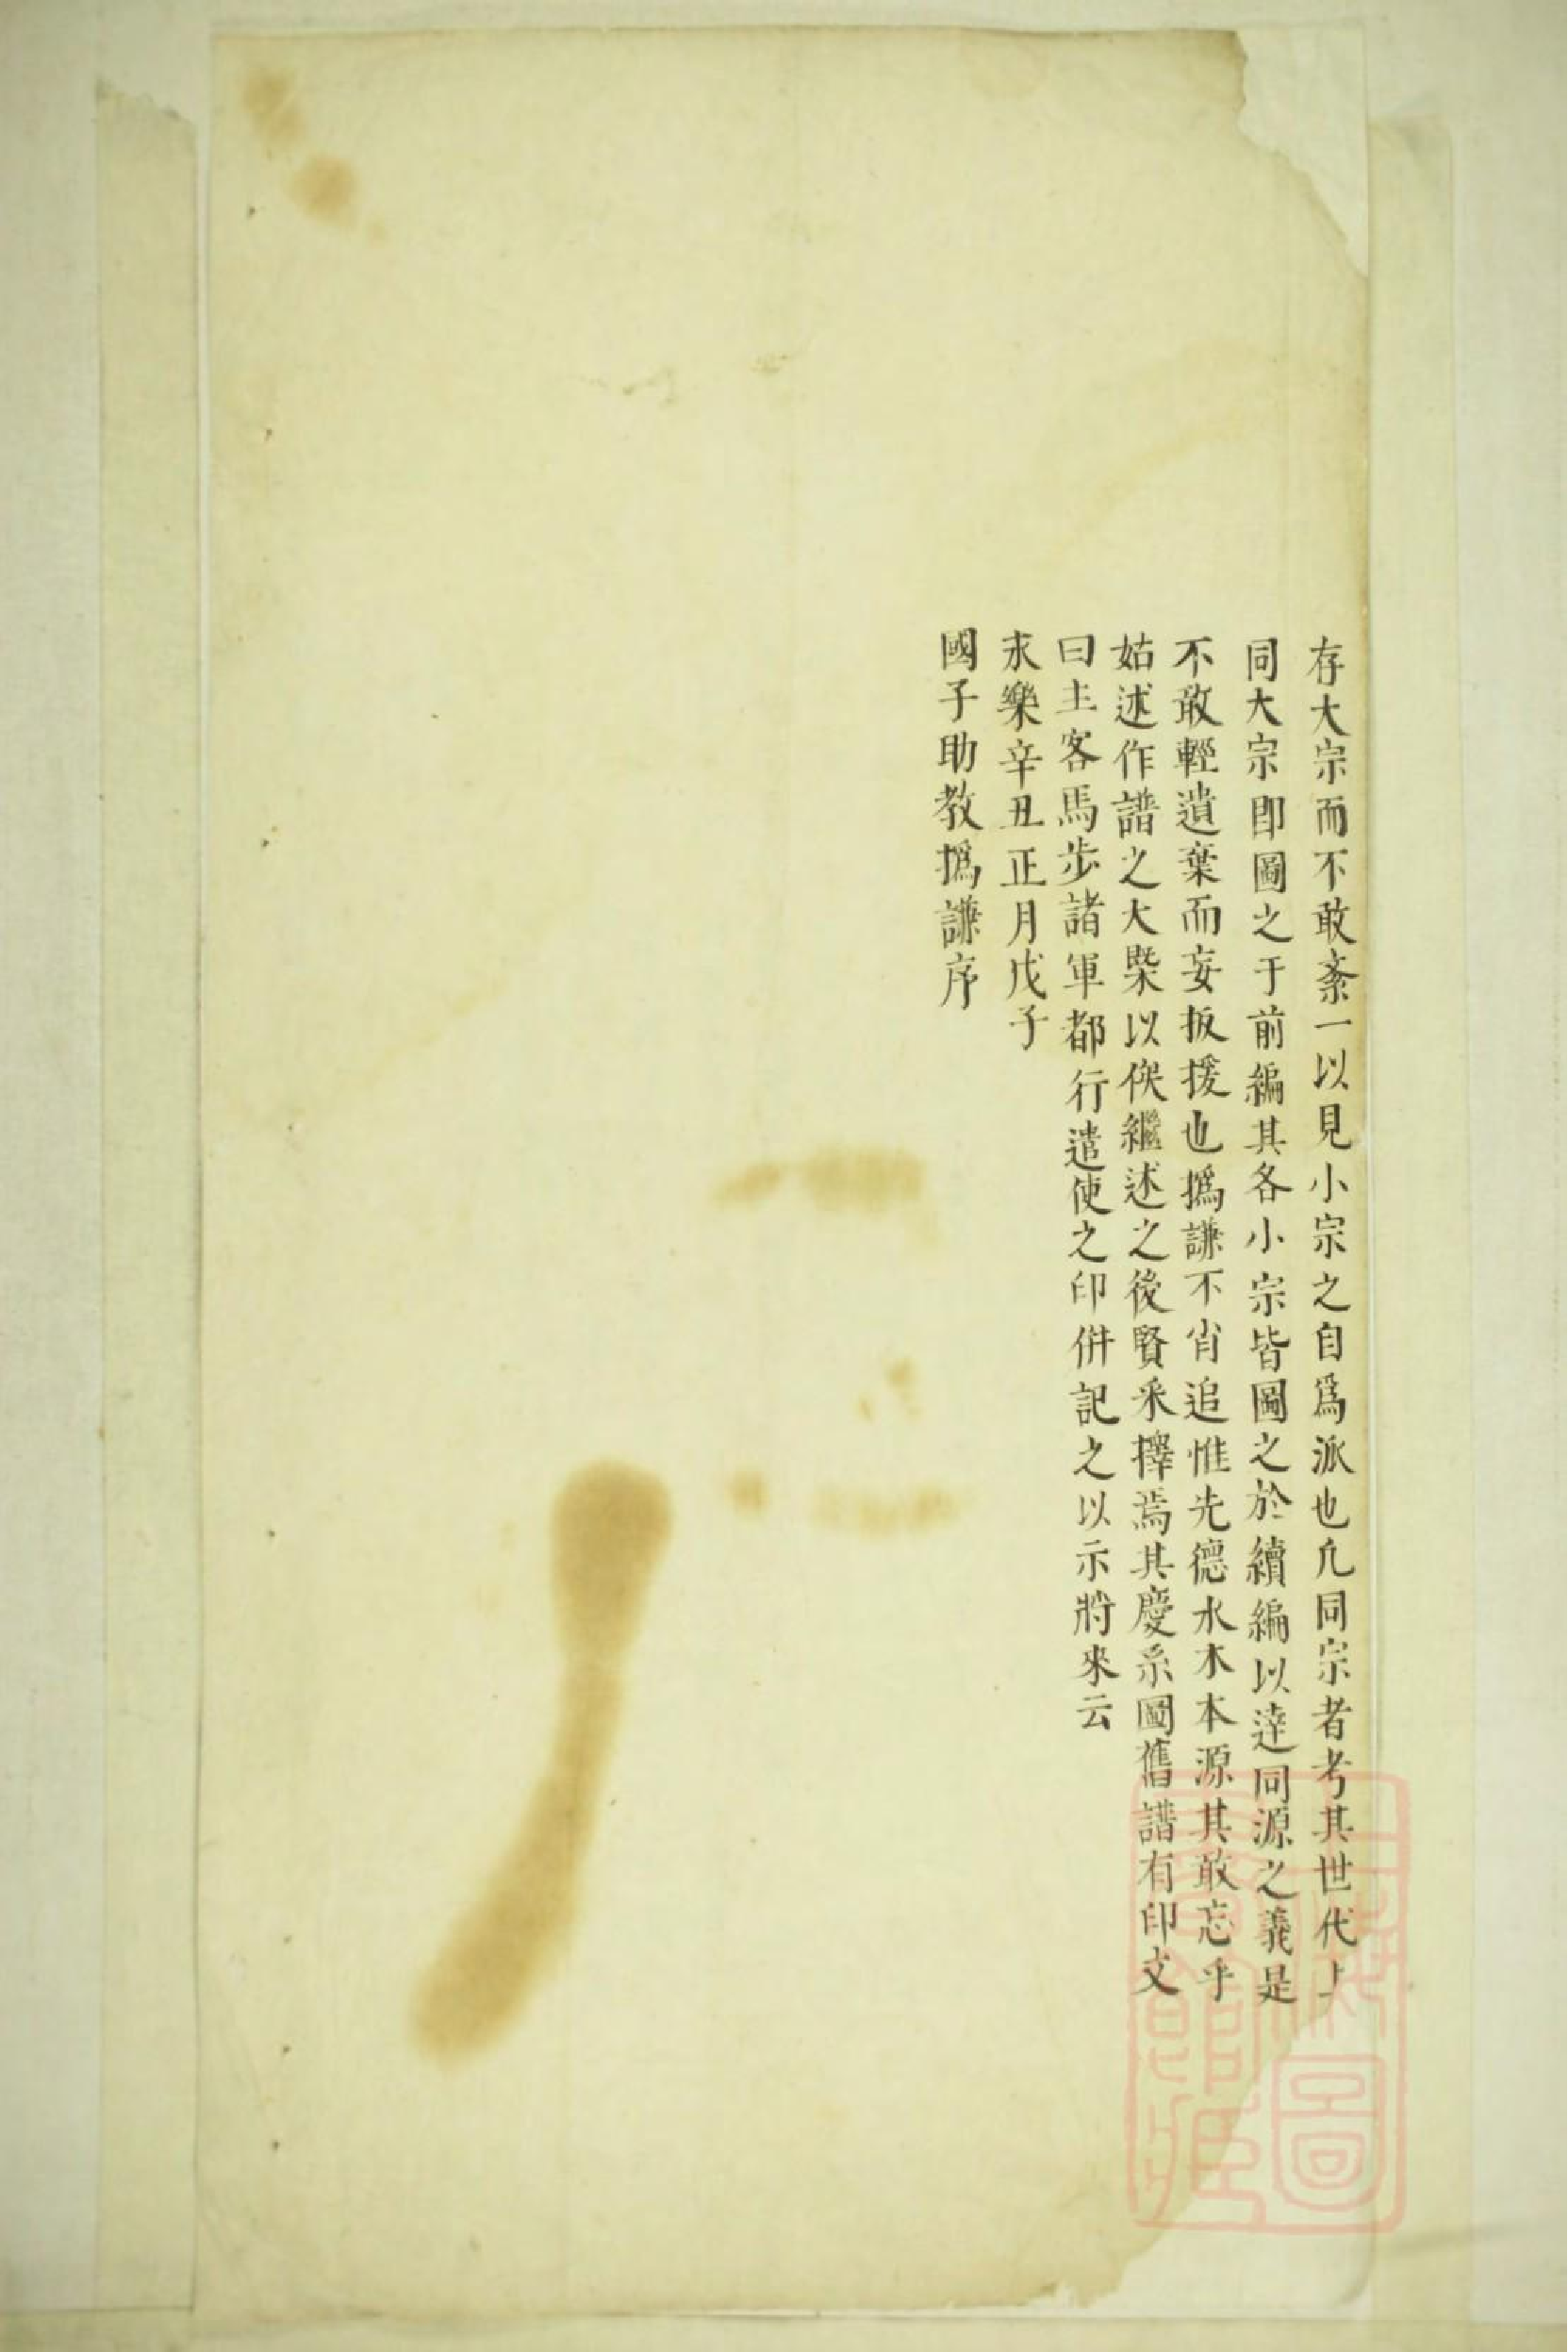 存大宗而不敢紊一以見小宗之自爲派也凢同宗者考其世代上
同大宗即圖之于前編其各小宗皆圖之於續編以達同源之義是
不敢輕遺棄而妄扳援也撝謙不肖追惟先德水木本源其敢忘乎
姑述作譜之大槩以俟繼述之後賢釆擇焉其慶系圖舊譜有印文
曰主客馬步諸軍都行遣使之印併記之以示將來云
永樂辛丑正月戊子
國子助教撝謙序
上海圖書館藏